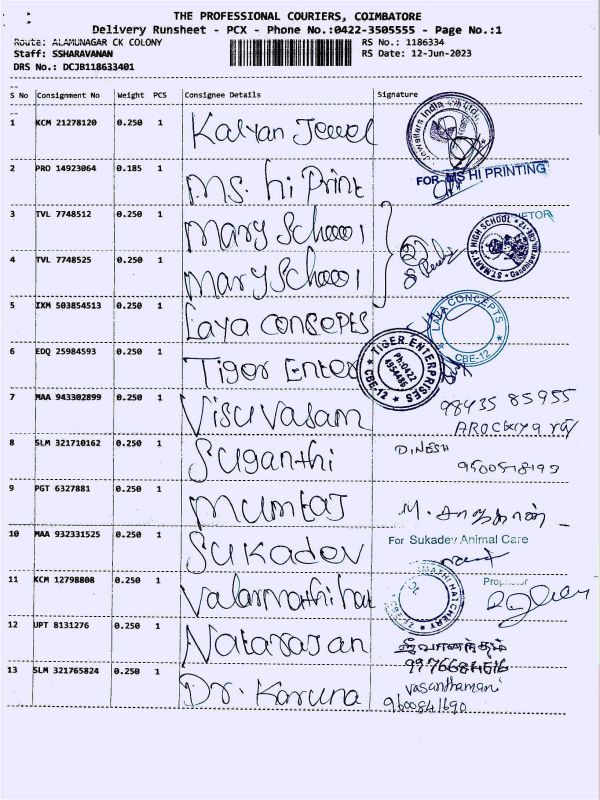 THE PROFESSIONAL COURIERS, COIMBATORE
Delivery Runsheet - PCX - Phone No.:0422-3505555 - Page No.:1
Route: ALAMUNAGAR CK COLONY RS No.: 1186334
Staff: SSHARAVANAN RS Date: 12-Jun-2023
DRS No.: DCJB118633401
S No Consignment No Weight PCS Consignee Details Signature
1 KCM 21278120 0.250 1 Kalyan Jewel
Jewellers India
2 PRO 14923064 0.185 1 Ms. hi Print
FOR MS HI PRINTING
3 TVL 7748512 0.250 1 Mary School
4 TVL 7748525 0.250 1 Mary School
ST.MARY'S HIGH SCHOOL
5 IXM 503854513 0.250 1 Laya concepts
LAYA CONCEPTS
CBE-12
6 EDQ 25984593 0.250 1 Tiger Enter
TIGER ENTERPRISES
Ph:0422
4554486
CBE-12
7 MAA 943302899 0.250 1 Visuvasam
98435 85955
AROCKIYA
8 SLM 321710162 0.250 1 Suganthi
DINESH
9 PGT 6327881 0.250 1 Mumtaj
M.
10 MAA 932331525 0.250 1 Sukadev
For Sukadev Animal Care
Proprietor
11 KCM 12798808 0.250 1 Valarmathi hat
HATCHERY
12 UPT 8131276 0.250 1 Natarajan
13 SLM 321765824 0.250 1 Dr. Karuna
Vasanthamani
9600841690